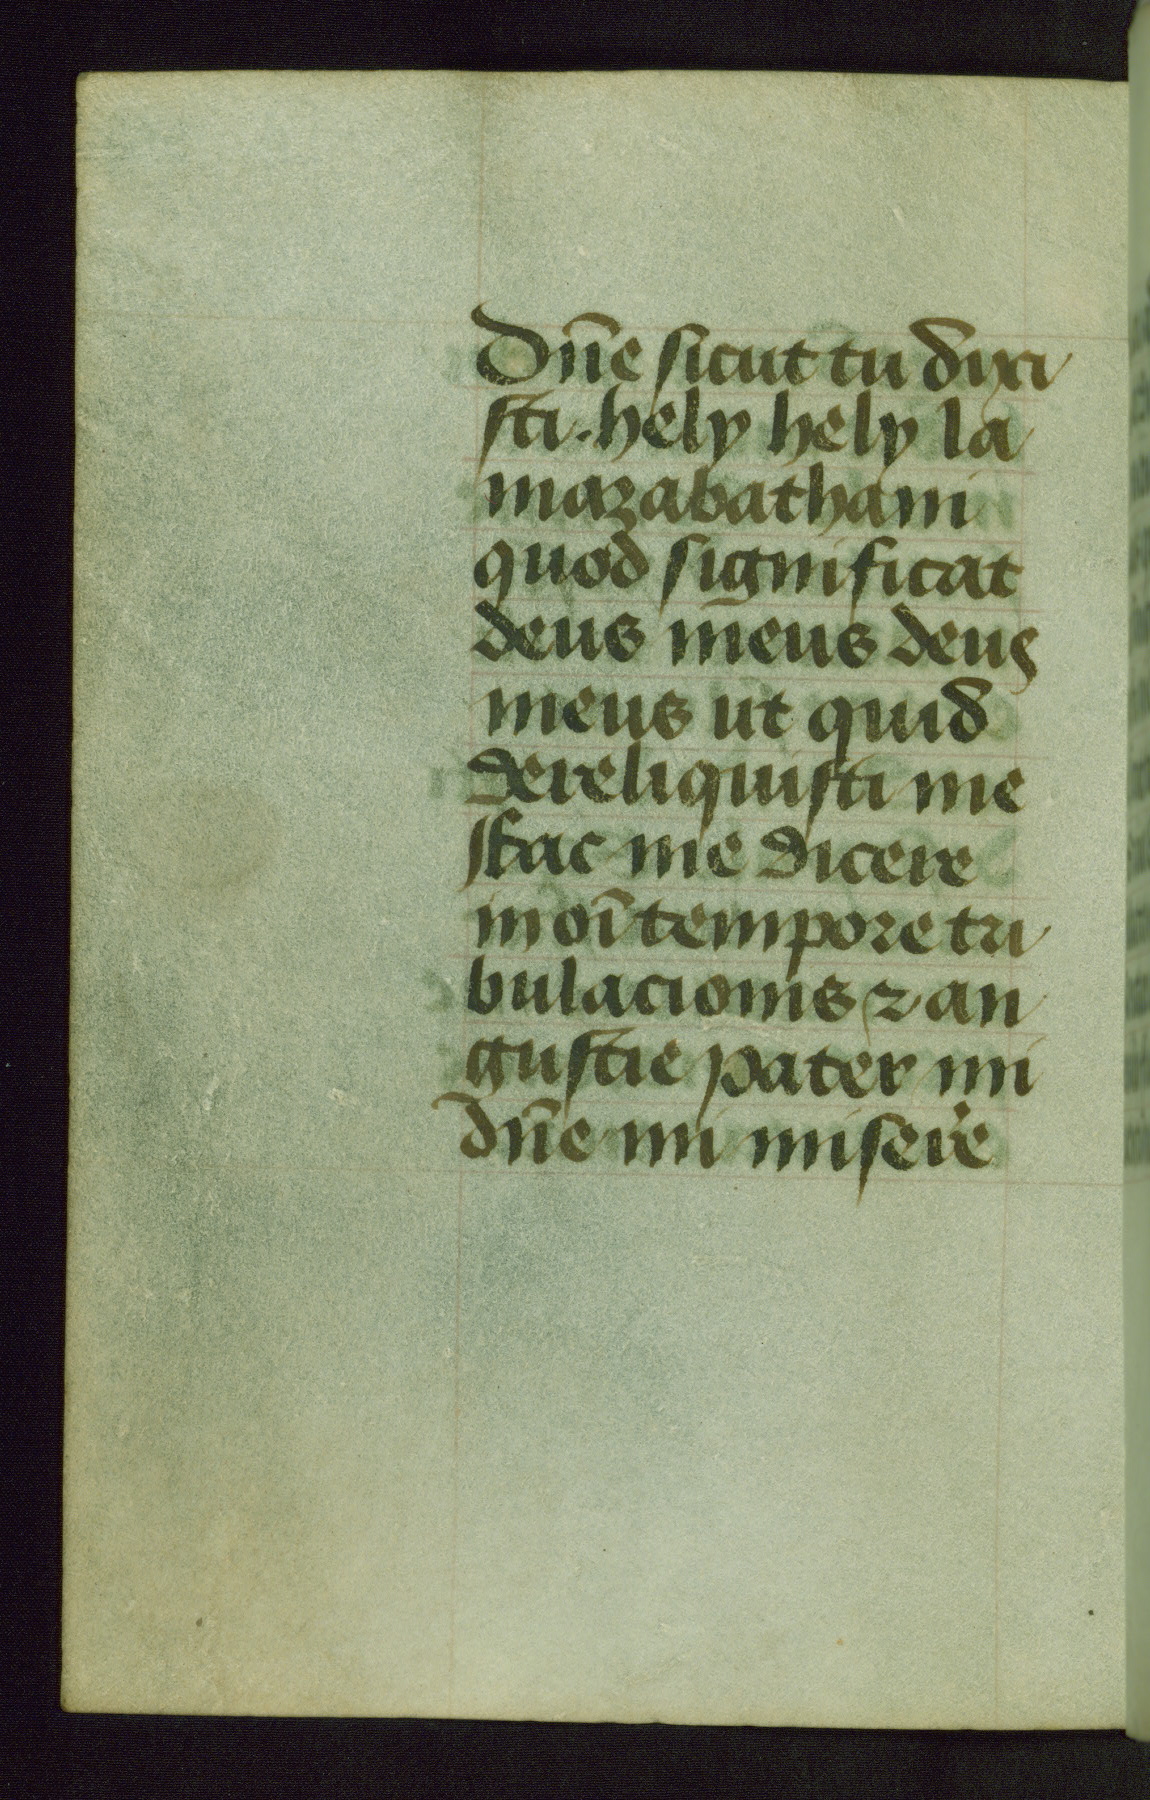 Dn̄e sicut tu dixi
sti. hely hely la
mazabathani
quod significat
deus meus deus
meus ut quid
dereliquisti me
ffac me dicere
in oī tempore tri
bulacionis ⁊ an
gustie pater mi
dn̄e mi misere